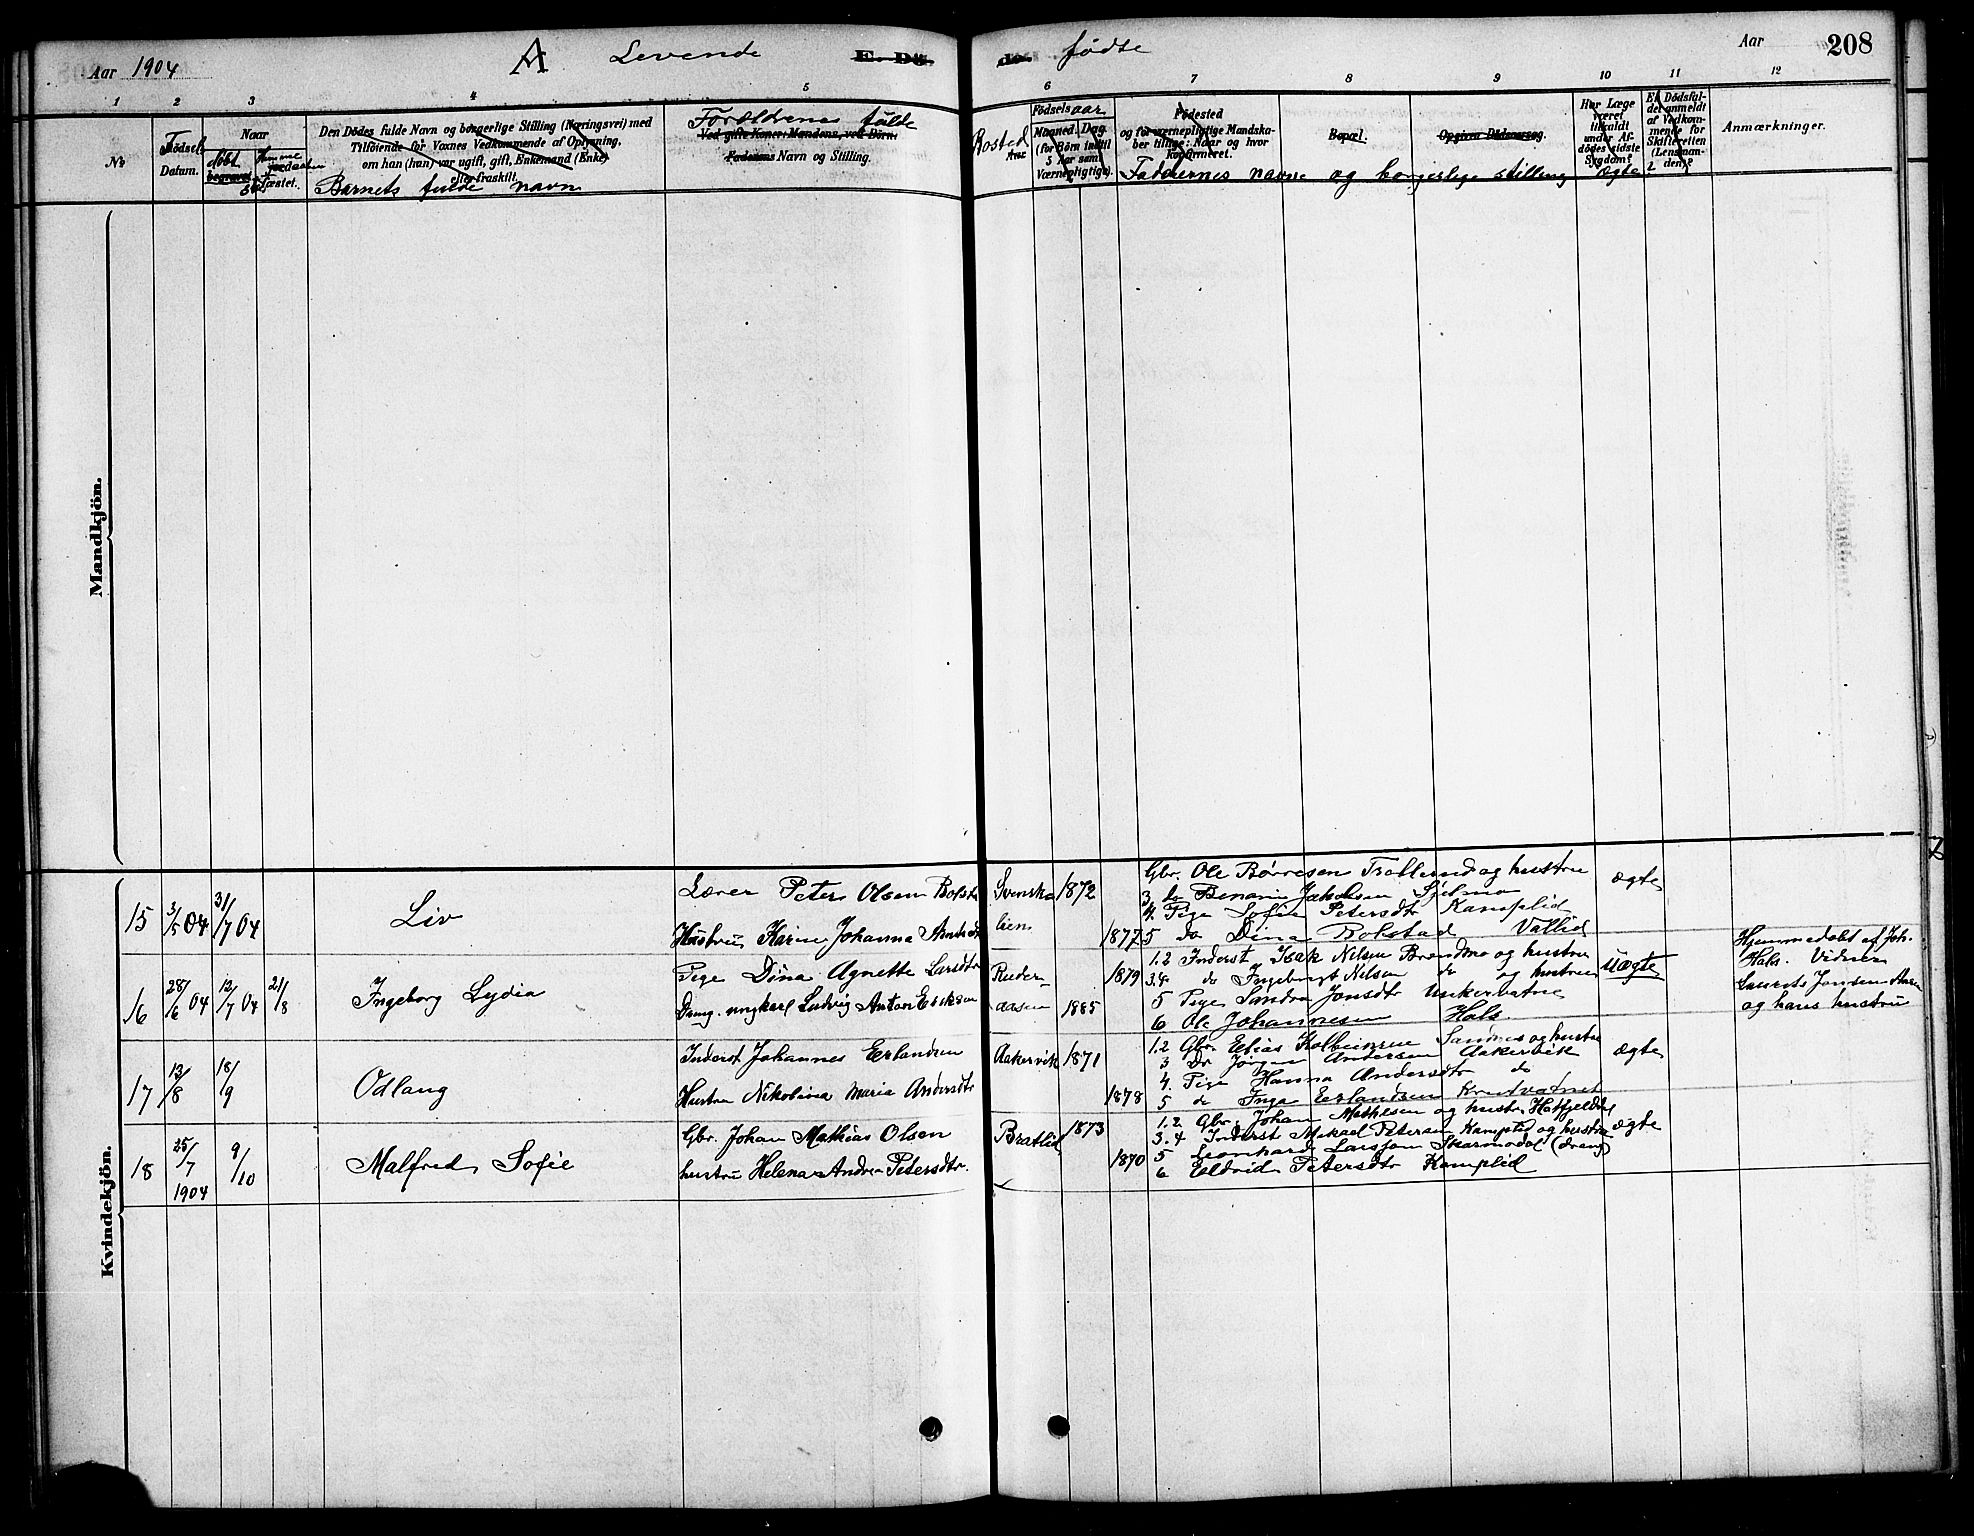 Aar 1904 A Levende E. Dö- de. fødte Aar 208
1 2 3 4 5 6 7 8 9 10 11 12
No
Fødsels Datum.
Naar
døbt begravet
Hjemme
Den Dödes fulde Navn og borgerlige Stilling (Næringsvei) med
Tilföiende for Voxnes Vedkommende af Oplysning,
om han (hun) var ugift, gift, Enkemand (Enke)
eller fraskilt.
Barnets fulde navn
Forældrenes fulde
Ved gifte Koner: Mandens, ved Börn:
Faderens Navn og Stilling.
Bosted
Födselsaar
Maaned. Dag.
(for Börn indtil
5 Aar samt
Værnepligtige).
Födested
og for værnepligtige Mandska-
ber tillige: Naar og hvor
konfirmeret.
Bopæl.
Opgiven Dödsaarsag.
Faddernes navne og borgerlige stilling
Har Læge
været
tilkaldt
under Af-
dödes sidste
Sygdom?
ægte
Er Dödsfal-
det anmeldt
af Vedkom-
mende for
Skifteretten
(Lensman-
den)?
Anmærkninger.
Mandkjön.
Kvindekjön.
15 3/5 04 31/7 04 Liv
Lærer Peter Olsen Bolstad
Hustru Karine Johanna
Svensk-
lien
1872
1877
Gbr. Ole Børresen Trollund og hustru
3 do Benjamin Jakobsen
4. Pige Sofie Petersdtr Kamplid
5 do Dina Bolstad Vallid
ægte
16 28/6 04 12/7 04 21/8 Ingeborg Lydia
Pige Dina Agnette Larsdtr
ungkarl Ludvig Anton
aasen
1879
1885
1.2 Inderst Isak Nilsen Brandmo og hustru
3.4 do Ingebrigt Nilsen do og hustru
5 Pige Sandra Jonsdtr Unkervatne
6 Ole Johannesen Hals.
uægte
Hjemmedøbt af Joh.
Hals. Vidner
Laurits Jonsen
og hans hustru
17 13/8 18/9 Odlaug
Inderst Johannes Erlandsen
Hustru Nikolina Maria Andersdtr
Aakervik
1871
1878
1.2 Gbr. Elias Kolbeinsen Sandnes og hustru
3 Do Jørgen Andersen Aakervik
4. Pige Hanna Andersdtr do
5 do Inga Erlandsen Krutvatnet
ægte
18 25/7 1904 9/10 Malfred Sofie
Gbr. Johan Mathias Olsen
hustru Helena Andrea Petersdtr.
Bratlid
1873
1870
1.2 Gbr. Johan Mathisen og hustru Hatfjelddal
3.4 Inderst Mikael Petersen Kamplid og hustru
5 Leonhard Larssen Skarmodal (dreng)
6 Eldrid Petersdtr Kamplid
ægte